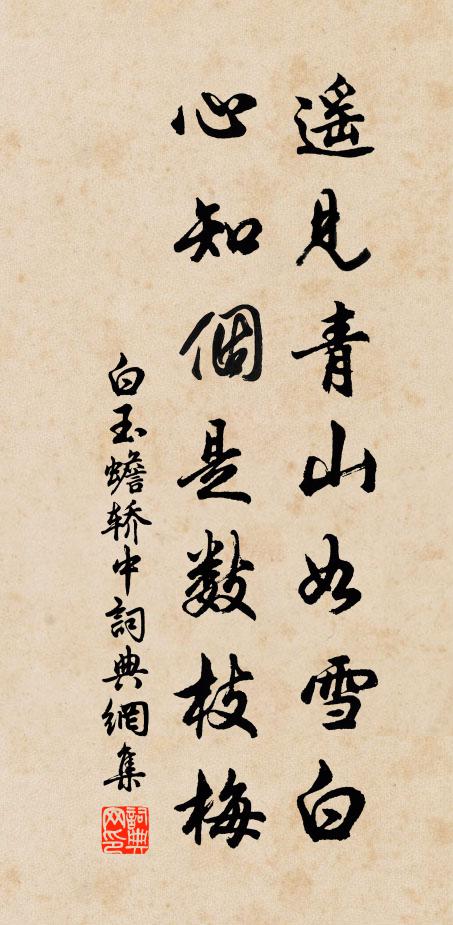 遥見青山如雪白
心知個是數枝梅
白玉蟾轿中詞典網集
詞典网印